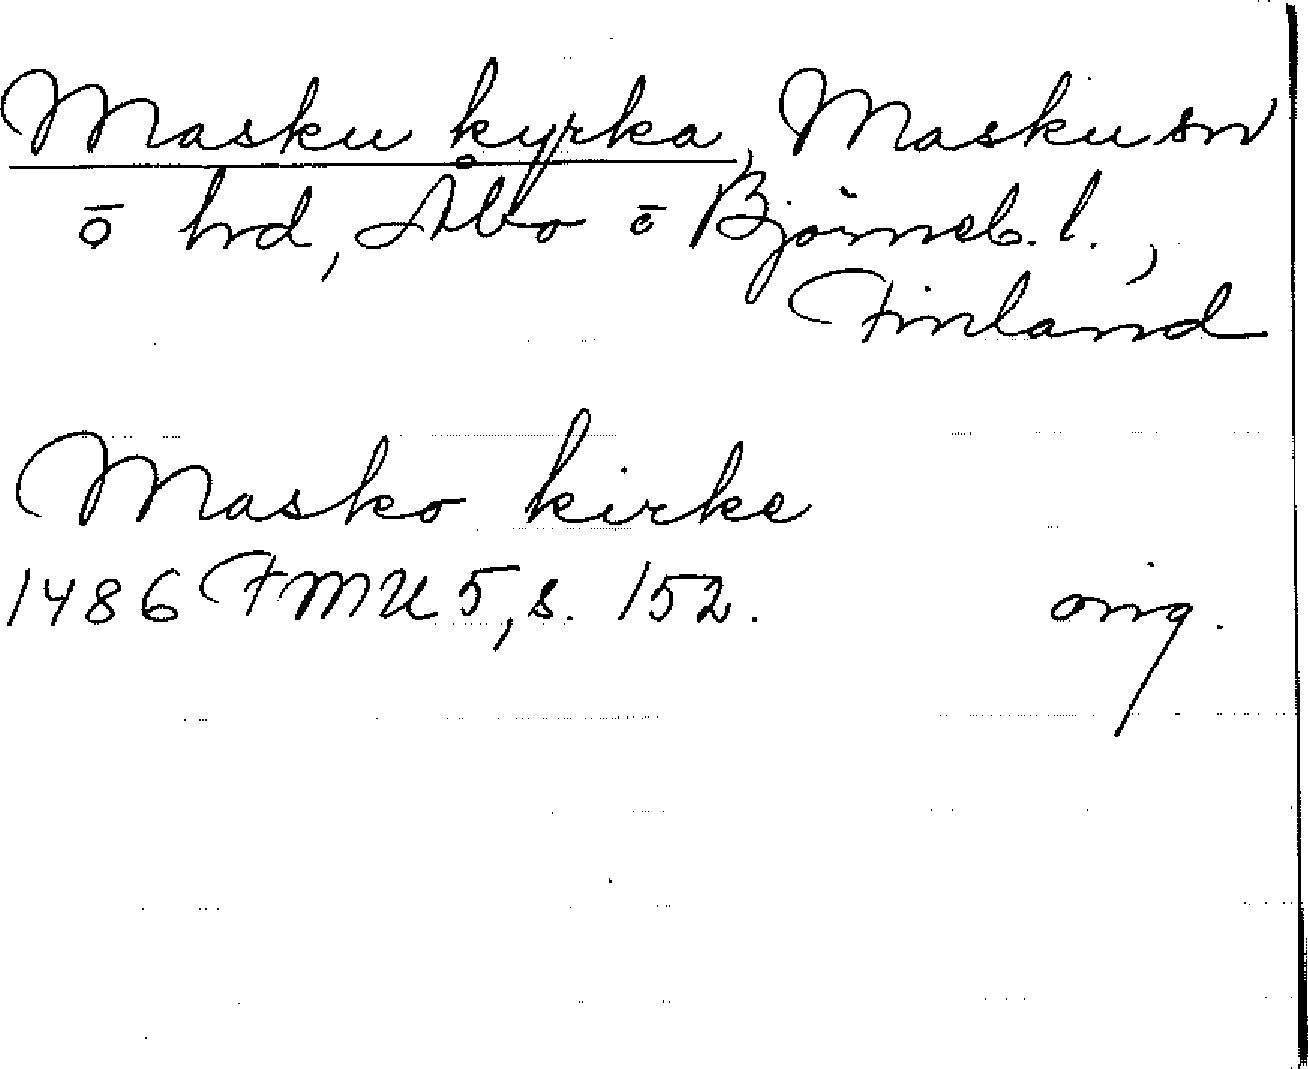 Masku kyrka, Masku sn
ō hd, Åbo ō Björneb. l.,
Finland
Masko kirke
1486 FMU 5, s. 152. orig.